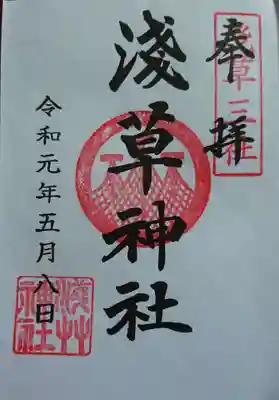 奉拝
淺草三社
淺草神社
令和元年五月八日
淺草神社